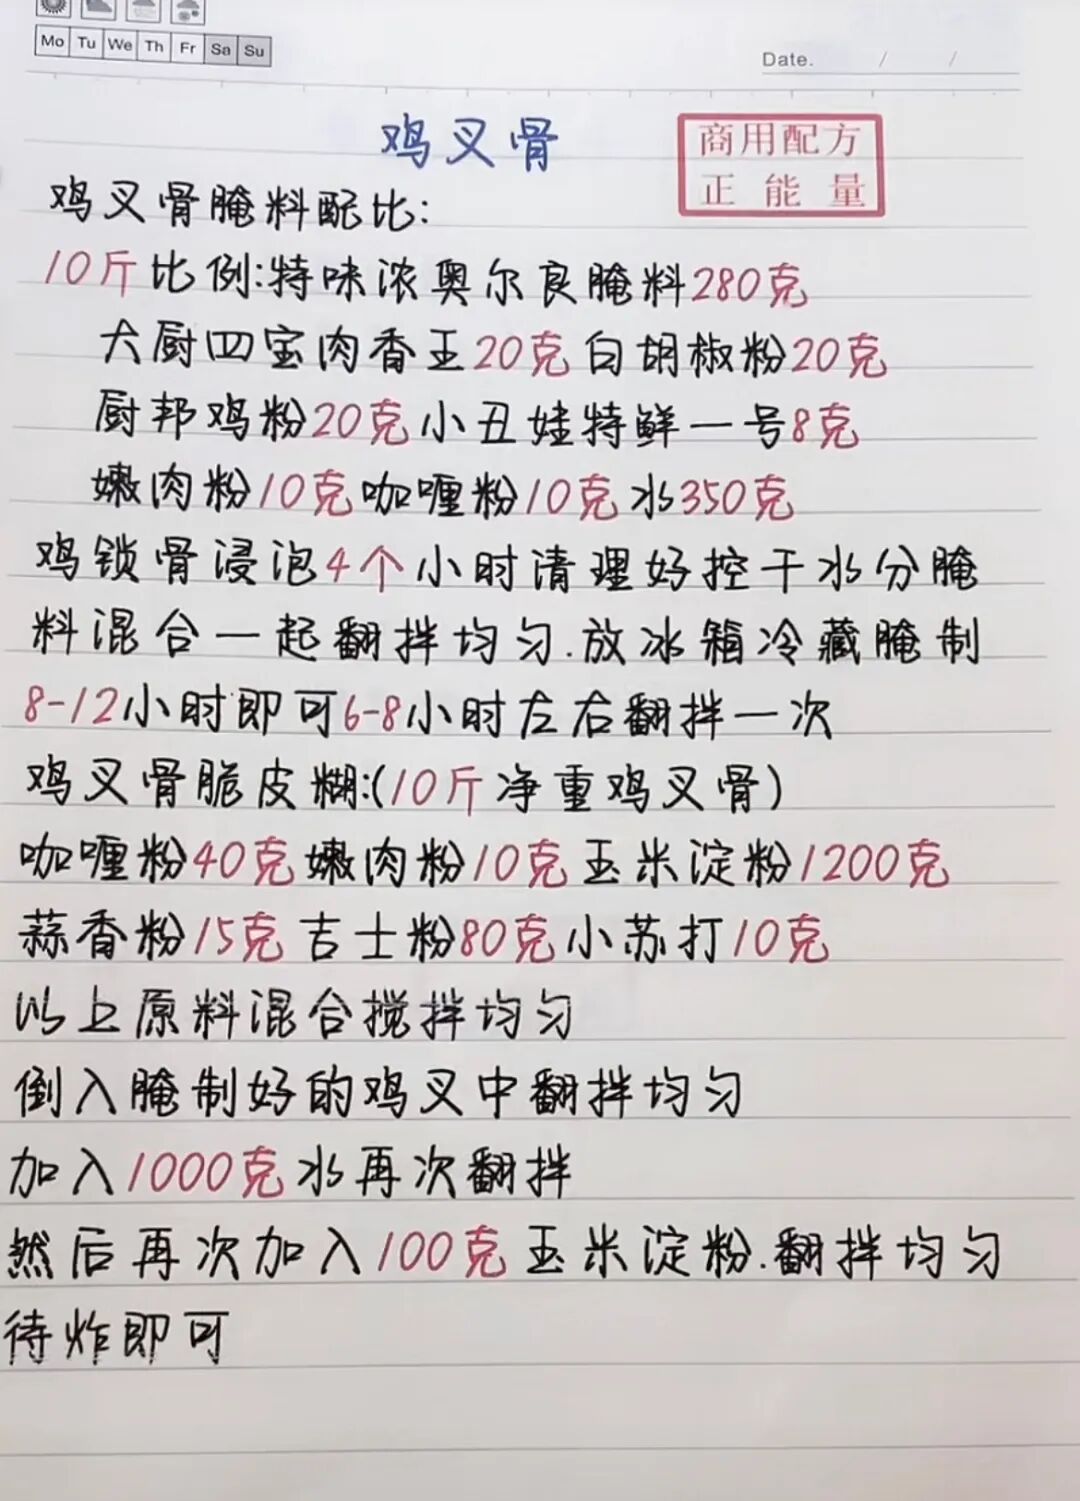 Mo Tu We Th Fr Sa Su
Date. / /
鸡叉骨
商用配方
正能量
鸡叉骨腌料配比:
10斤比例:特味浓奥尔良腌料280克
大厨四宝肉香王20克白胡椒粉20克
厨邦鸡粉20克小丑娃特鲜一号8克
嫩肉粉10克咖喱粉10克水350克
鸡锁骨浸泡4个小时清理好控干水分腌
料混合一起翻拌均匀.放冰箱冷藏腌制
8-12小时即可6-8小时左右翻拌一次
鸡叉骨脆皮糊:(10斤净重鸡叉骨)
咖喱粉40克嫩肉粉10克玉米淀粉1200克
蒜香粉15克吉士粉80克小苏打10克
以上原料混合搅拌均匀
倒入腌制好的鸡叉中翻拌均匀
加入1000克水再次翻拌
然后再次加入100克玉米淀粉.翻拌均匀
待炸即可